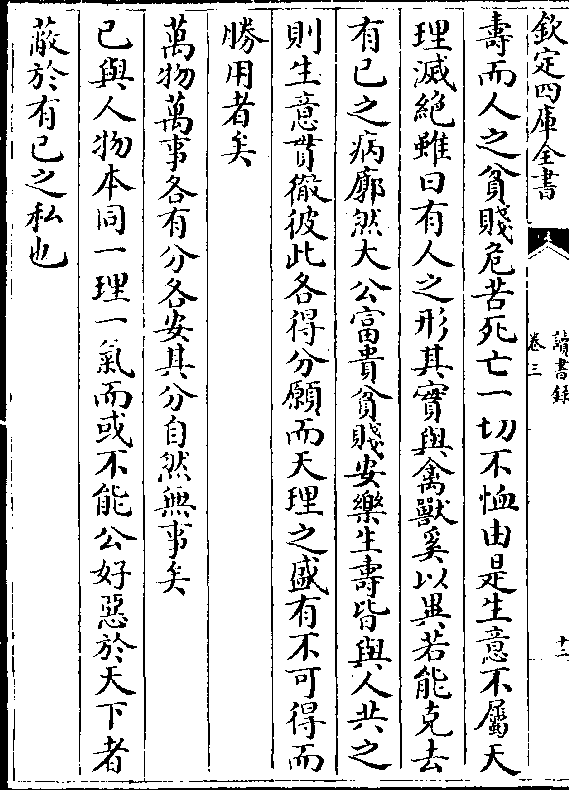 欽定四庫全書
讀書錄
卷三
十二
壽而人之貧賤危苦死亡一切不恤由是生意不屬天
理滅絕雖曰有人之形其實與禽獸奚以異若能克去
有已之病廓然大公富貴貧賤安樂生壽皆與人共之
則生意貫徹彼此各得分願而天理之盛有不可得而
勝用者矣
萬物萬事各有分各安其分自然無事矣
已與人物本同一理一氣而或不能公好惡於天下者
蔽於有已之私也